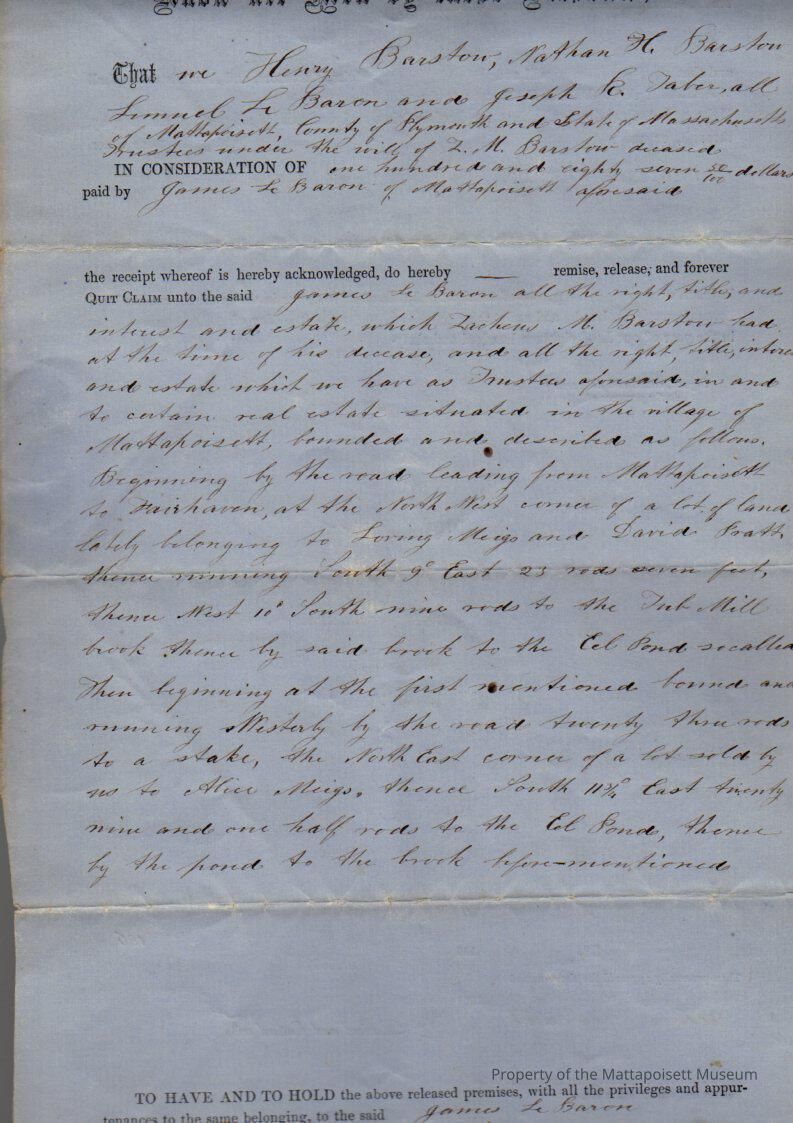 Know all Men by these Presents,
That we Henry Barstow, Nathan H. Barstow
Lemuel Le Baron and Joseph R. Taber, all
of Mattapoisett, County of Plymouth and State of Massachusetts
Trustees under the will of Z. M. Barstow deceased
IN CONSIDERATION OF one hundred and eighty seven 50/100 dollars
paid by James Le Baron of Mattapoisett aforesaid
the receipt whereof is hereby acknowledged, do hereby — remise, release, and forever
QUIT CLAIM unto the said James Le Baron all the right, title, and
interest and estate, which Zacheus M. Barstow had
at the time of his decease, and all the right, title, interest
and estate which we have as Trustees aforesaid, in and
to certain real estate situated in the village of
Mattapoisett, bounded and described as follows.
Beginning by the road leading from Mattapoisett
to Fairhaven, at the North West corner of a lot of land
lately belonging to Loring Meigs and David Pratt,
thence running South 9° East 23 rods seven feet,
thence West 10° South nine rods to the Tub Mill
brook thence by said brook to the Eel Pond so called
Then beginning at the first mentioned bound and
running Westerly by the road twenty three rods
to a stake, the North East corner of a lot sold by
us to Alice Meigs, thence South 11 3/4° East twenty
nine and one half rods to the Eel Pond, thence
by the pond to the brook before-mentioned
Property of the Mattapoisett Museum
TO HAVE AND TO HOLD the above released premises, with all the privileges and appur-
tenances to the same belonging, to the said James Le Baron